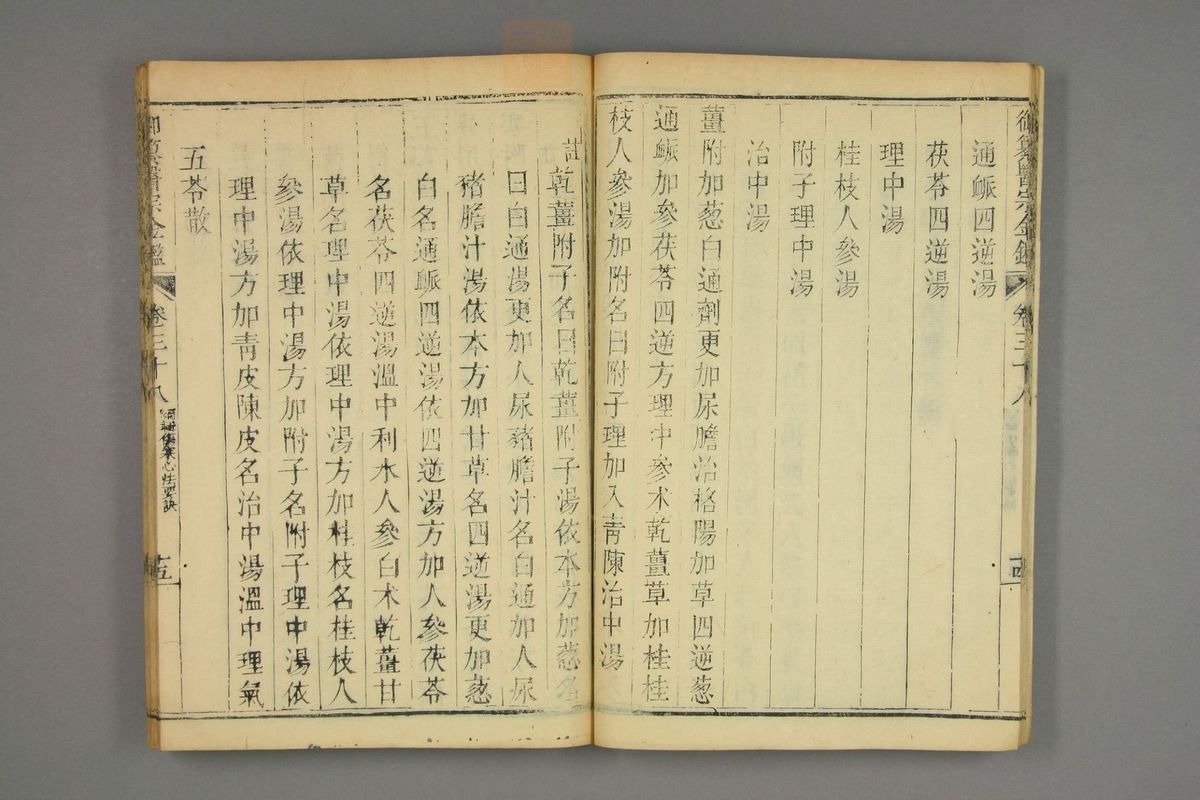 御纂醫宗金鑑 卷三十八
通脈四逆湯
茯苓四逆湯
理中湯
桂枝人參湯
附子理中湯
治中湯
薑附加葱白通劑更加尿膽治格陽加草四逆葱
通脈加參茯苓四逆方理中參朮乾薑草加桂桂
枝人參湯加附名曰附子理加入青陳治中湯
註乾薑附子名曰乾薑附子湯依本方加葱名
曰白通湯更加人尿豬膽汁名白通加人尿
豬膽汁湯依本方加甘草名四逆湯更加葱
白名通脈四逆湯依四逆湯方加人參茯苓
名茯苓四逆湯溫中利水人參白朮乾薑甘
草名理中湯依理中湯方加桂枝名桂枝人
參湯依理中湯方加附子名附子理中湯依
理中湯方加青皮陳皮名治中湯溫中理氣
五苓散
御纂醫宗金鑑 卷三十八 編輯傷寒心法要訣 十五